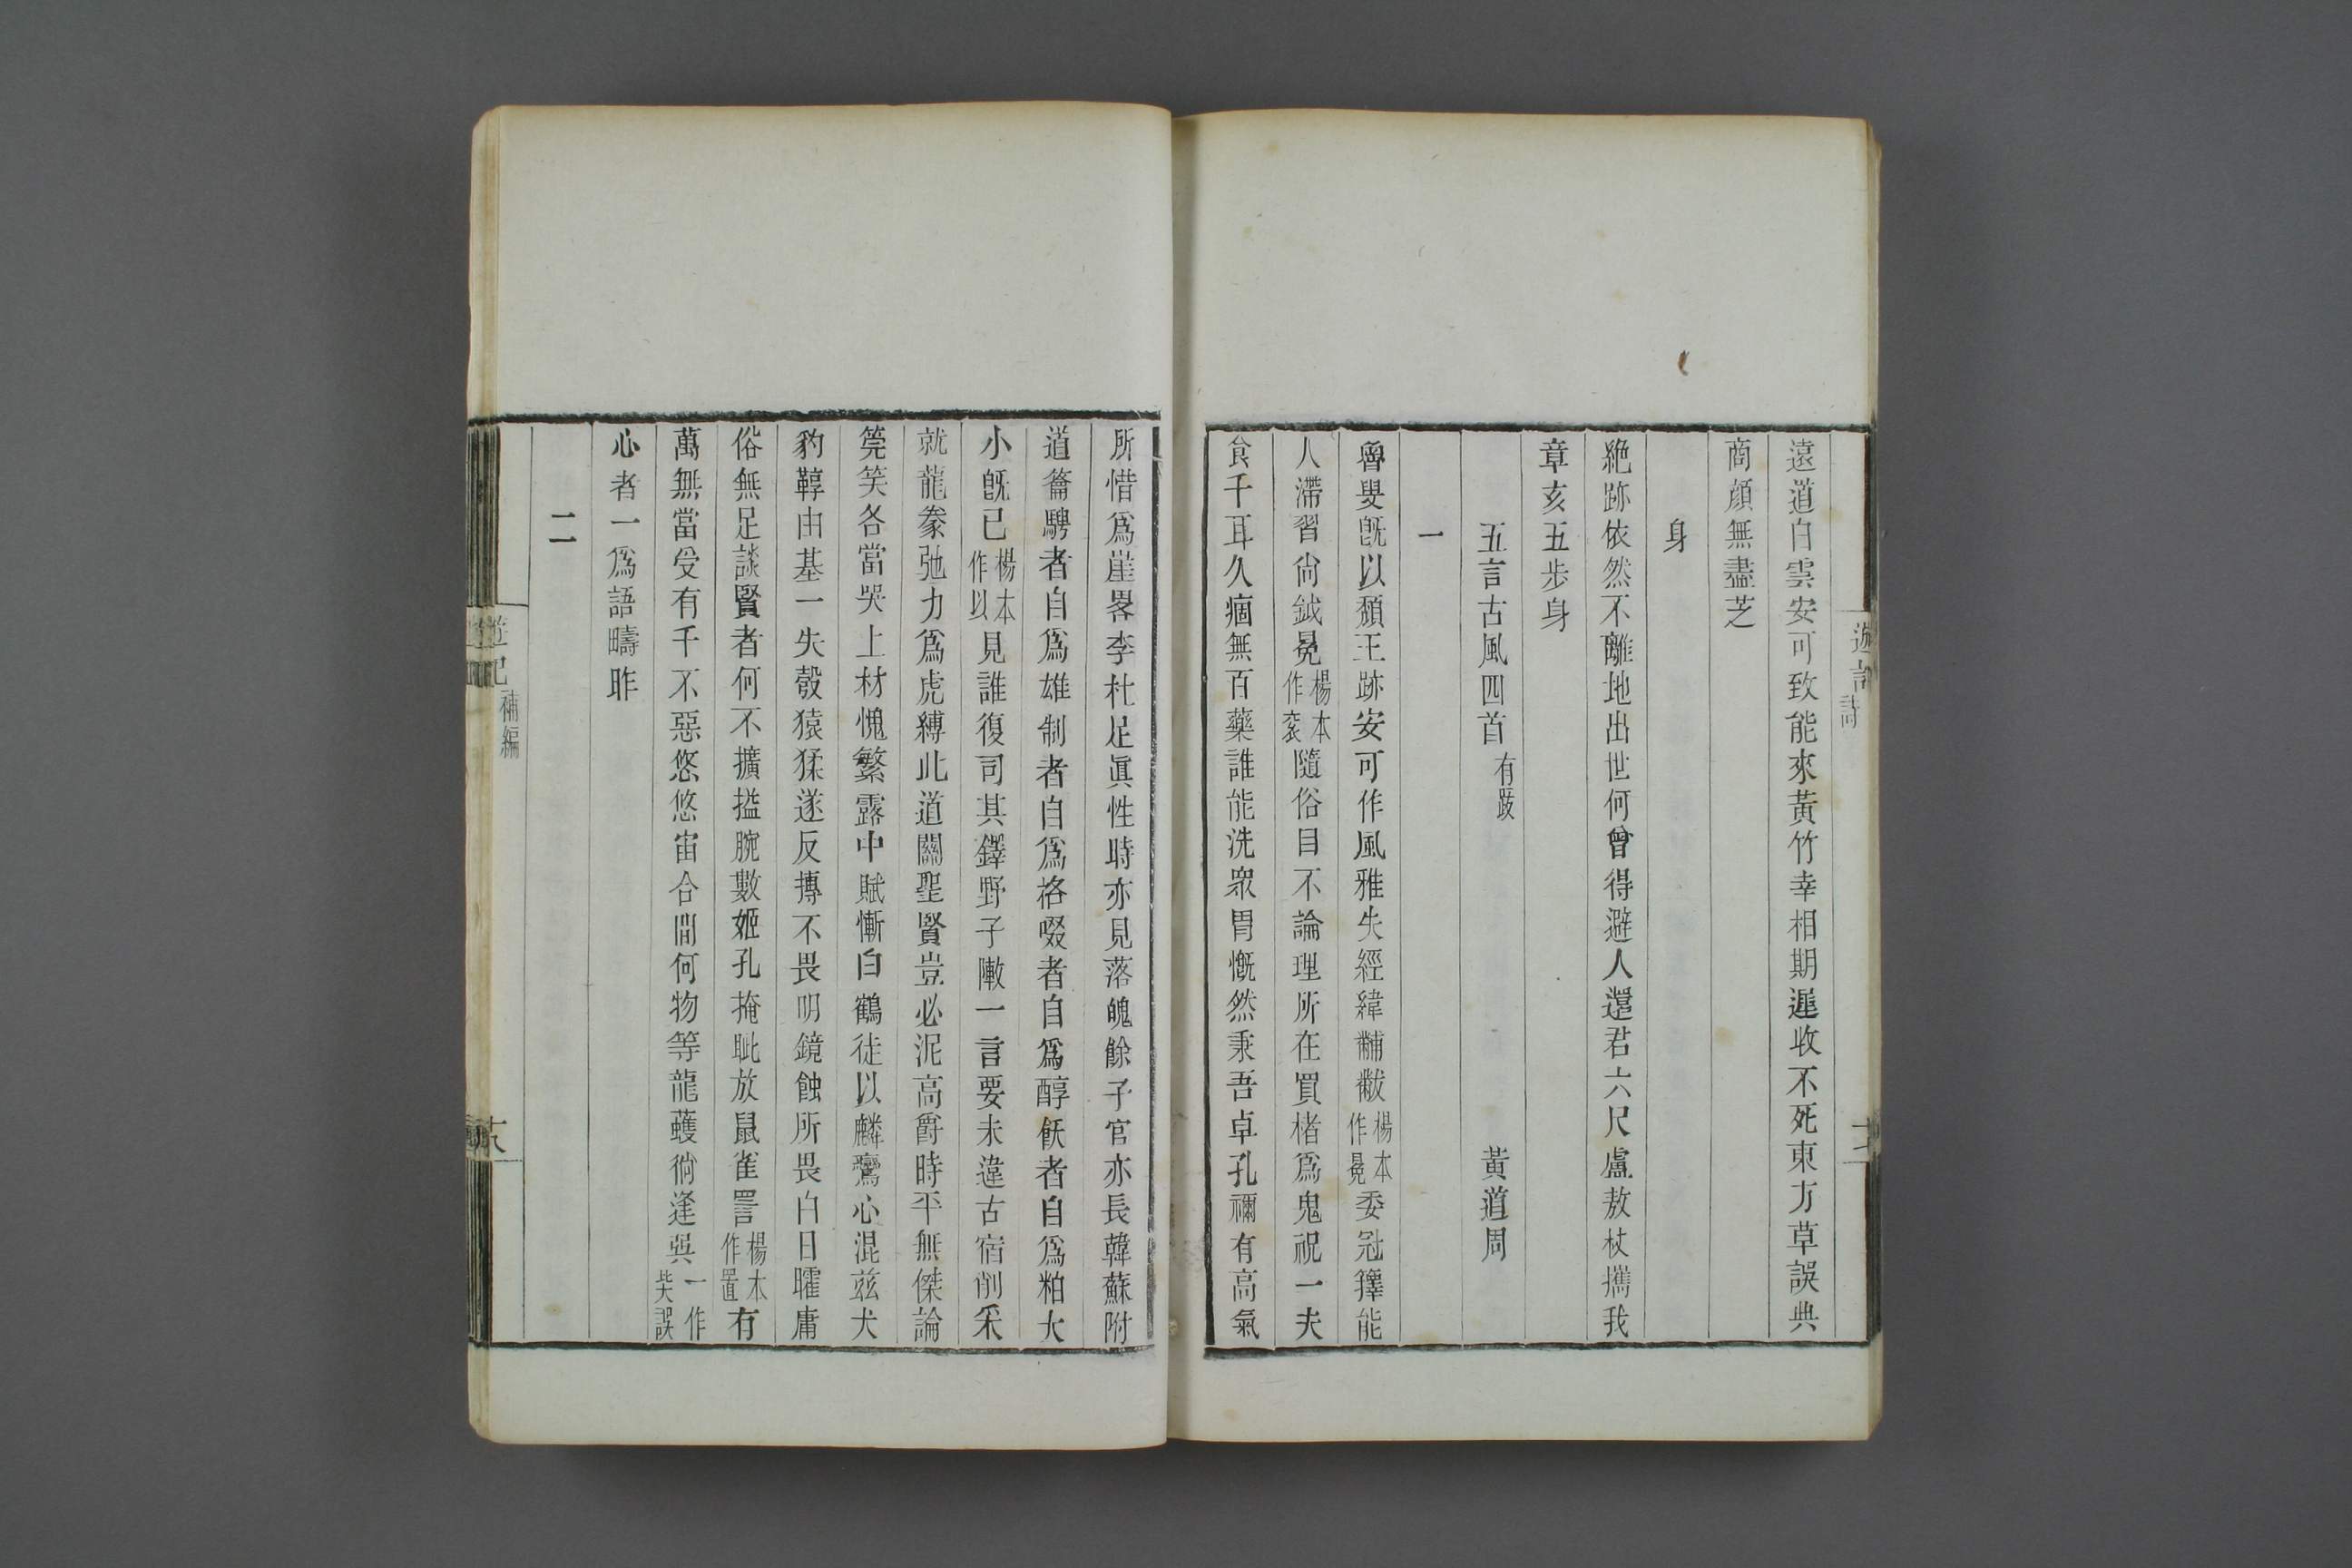 遠道白雲安可致能來黃竹幸相期遲收不死東方草誤典
商顏無盡芝
身
絶跡依然不離地出世何曾得避人還君六尺盧敖杖攜我
章亥五步身
五言古風四首有跋 黃道周
一
魯叟旣以頹王跡安可作風雅失經緯黼黻楊本作冕委冠籜能
人滯習尙鉞冕楊本作衮隨俗目不論理所在買楮爲鬼祝一夫
食千耳久痼無百藥誰能洗衆胃慨然秉吾卓孔禰有高氣
所惜爲崖畧李杜足眞性時亦見落魄餘子官亦長韓蘇附
道籥騁者自爲雄制者自爲格啜者自爲醇飫者自爲粕大
小旣已楊本作以見誰復司其鐸野子陳一言要未違古宿削采
就龍豢弛力爲虎縛此道關聖賢豈必泥高爵時平無傑論
筦笑各當哭上材愧繁露中賦慚白鶴徒以麟鸞心混茲犬
豹鞟由基一失彀猿猱遂反摶不畏明鏡蝕所畏白日矐庸
俗無足談賢者何不擴搤腕數姬孔掩眦放鼠雀詈楊本作置有
萬無當受有千不惡悠悠宙合間何物等龍蠖徜逢吳一作癸誤
心者一爲語疇昨
二
遊記
補編